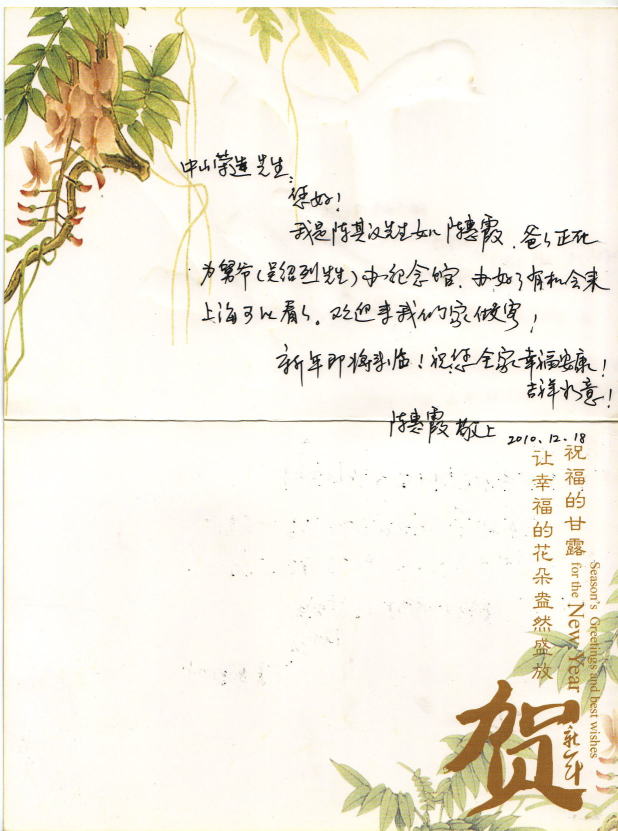 中山荣造先生：
您好！
我是陈其汉先生女儿陈惠霞，爸爸正在
为舅爷（吴绍烈先生）办纪念馆，办好了有机会来
上海可以看看。欢迎来我们家做客！
新年即将来临！祝您全家幸福安康！
吉祥如意！
陈惠霞敬上 2010.12.18
祝福的甘露
让幸福的花朵盎然盛放
Season's Greetings and best wishes
for the New Year
贺
新年